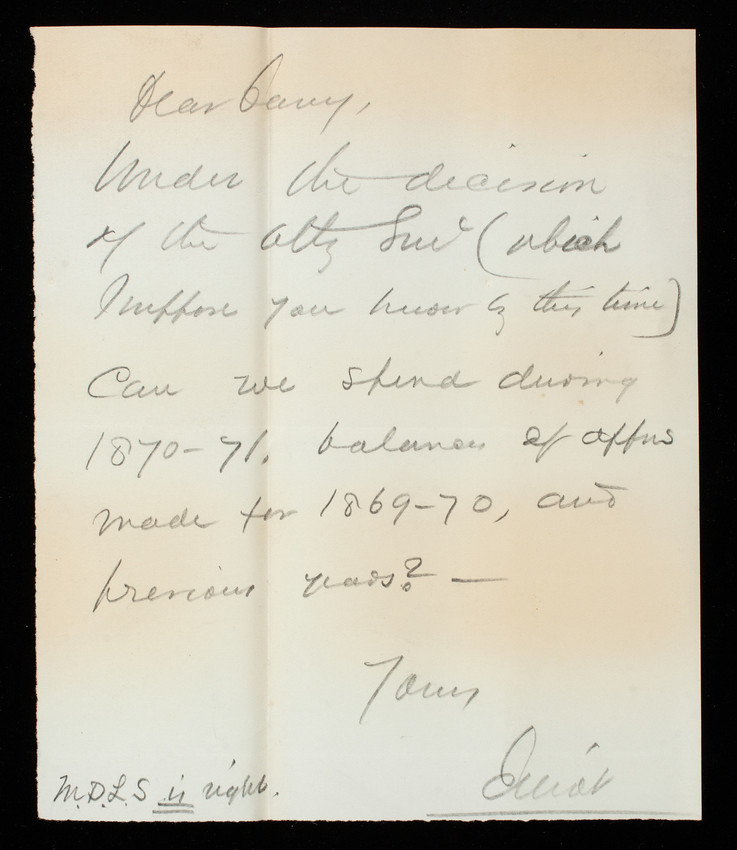 Dear Casey,
Under the decision
of the Atty Genl (which
I suppose you know by this time)
Can we spend during
1870-71, balances of apprs
made for 1869-70, and
previous years? —
Yours
M.D.L.S is right.